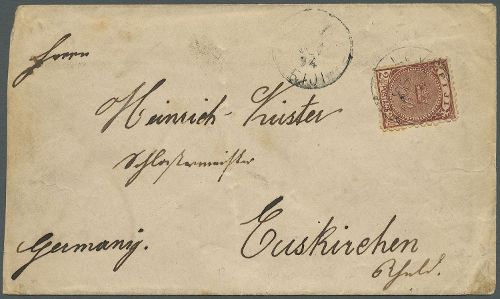 Herrn
94
FIJI
FIJI
Heinrich Küster
Schlossermeister
Germany.
Euskirchen
Rhnld.